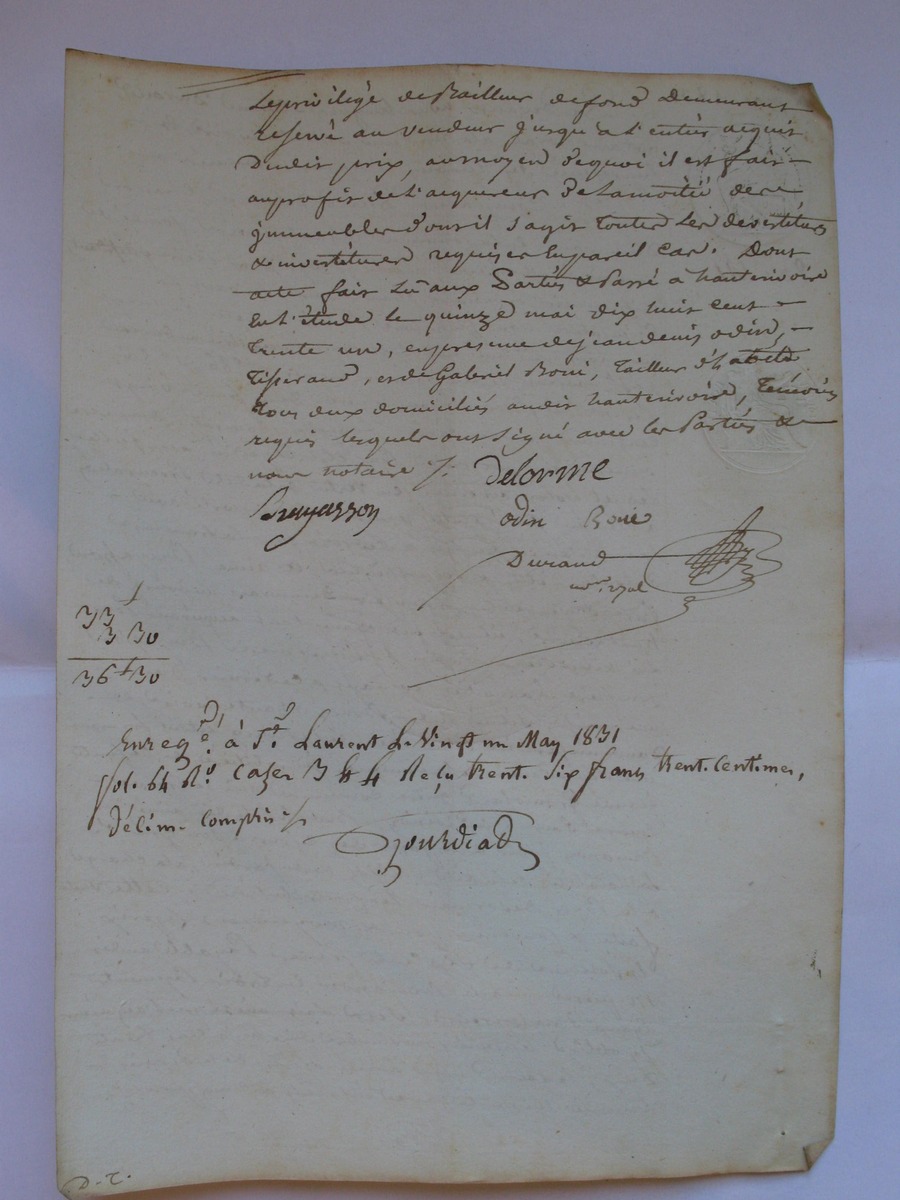 Le privilège de Bailleur de fond Demeurant
reservé au vendeur jusqu'à l'entier acquis
Dudit prix, au moyen de quoi il est fait
au profit de l'acquereur de la moitié des
jmmeubles dont il s'agit toutes les devestitures
& investitures requises en pareil cas. Dont
acte fait Lu aux Parties & Passé à hauterivoire
En l'étude le quinze mai dix huit cent
trente un, en presence de jean denis odin,
Tisserand, et de Gabriel Boui, Tailleur d'habits
tous deux domiciliés audit hauterivoire, témoins
requis lesquels ont signé avec les Parties &
nous notaire /.
Delorme
odin Boui
Durand
nre. royal
33 f
3 30
36 f 30
Enregé. à St. Laurent Le Vingt un May 1831
fol. 64 Ro. Cases 3 & 4 Reçu trent. Six francs trent. Centimes,
Décime Compris /.
Gourdiat
D. T.